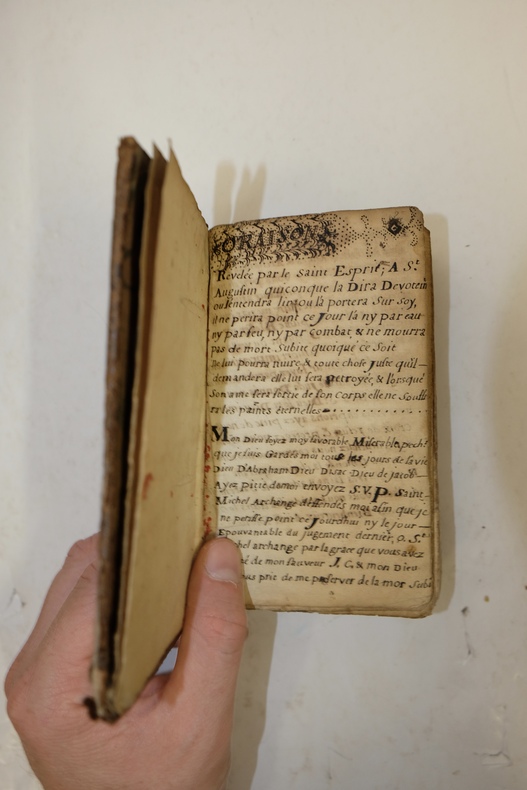 ORAISON
Revelée par le Saint Esprit, A St.
Augustin quiconque la Dira Devotem
ou lentendra lire, ou la portera Sur Soy,
il ne perira point ce Jour là ny par eau
ny par feu, ny par combat, & ne mourra
pas de mort Subite quoique ce Soit
Ne lui pourra nuire, & toute chose Juste qu'il
demandera elle lui sera octroyée, & lorsque
Son ame sera sortie de son Corps elle ne Souff
ra les paints éternelles
Mon Dieu soyez moy favorable, Miserable pech
que je suis Gardés moi tous les jours de la vie
Dieu D'Abraham Dieu Disac Dieu de Jacob
Ayez pitié de moi envoyez S.V.P. Saint
Michel Archange deffendés moi afin que je
ne perisse point ce Jourdhui ny le jour
Epouvantable du jugement dernier, O. St
chel archange par la grace que vous avez
de mon Sauveur J. C. & mon Dieu
vous prie de me preserver de la mor Subi